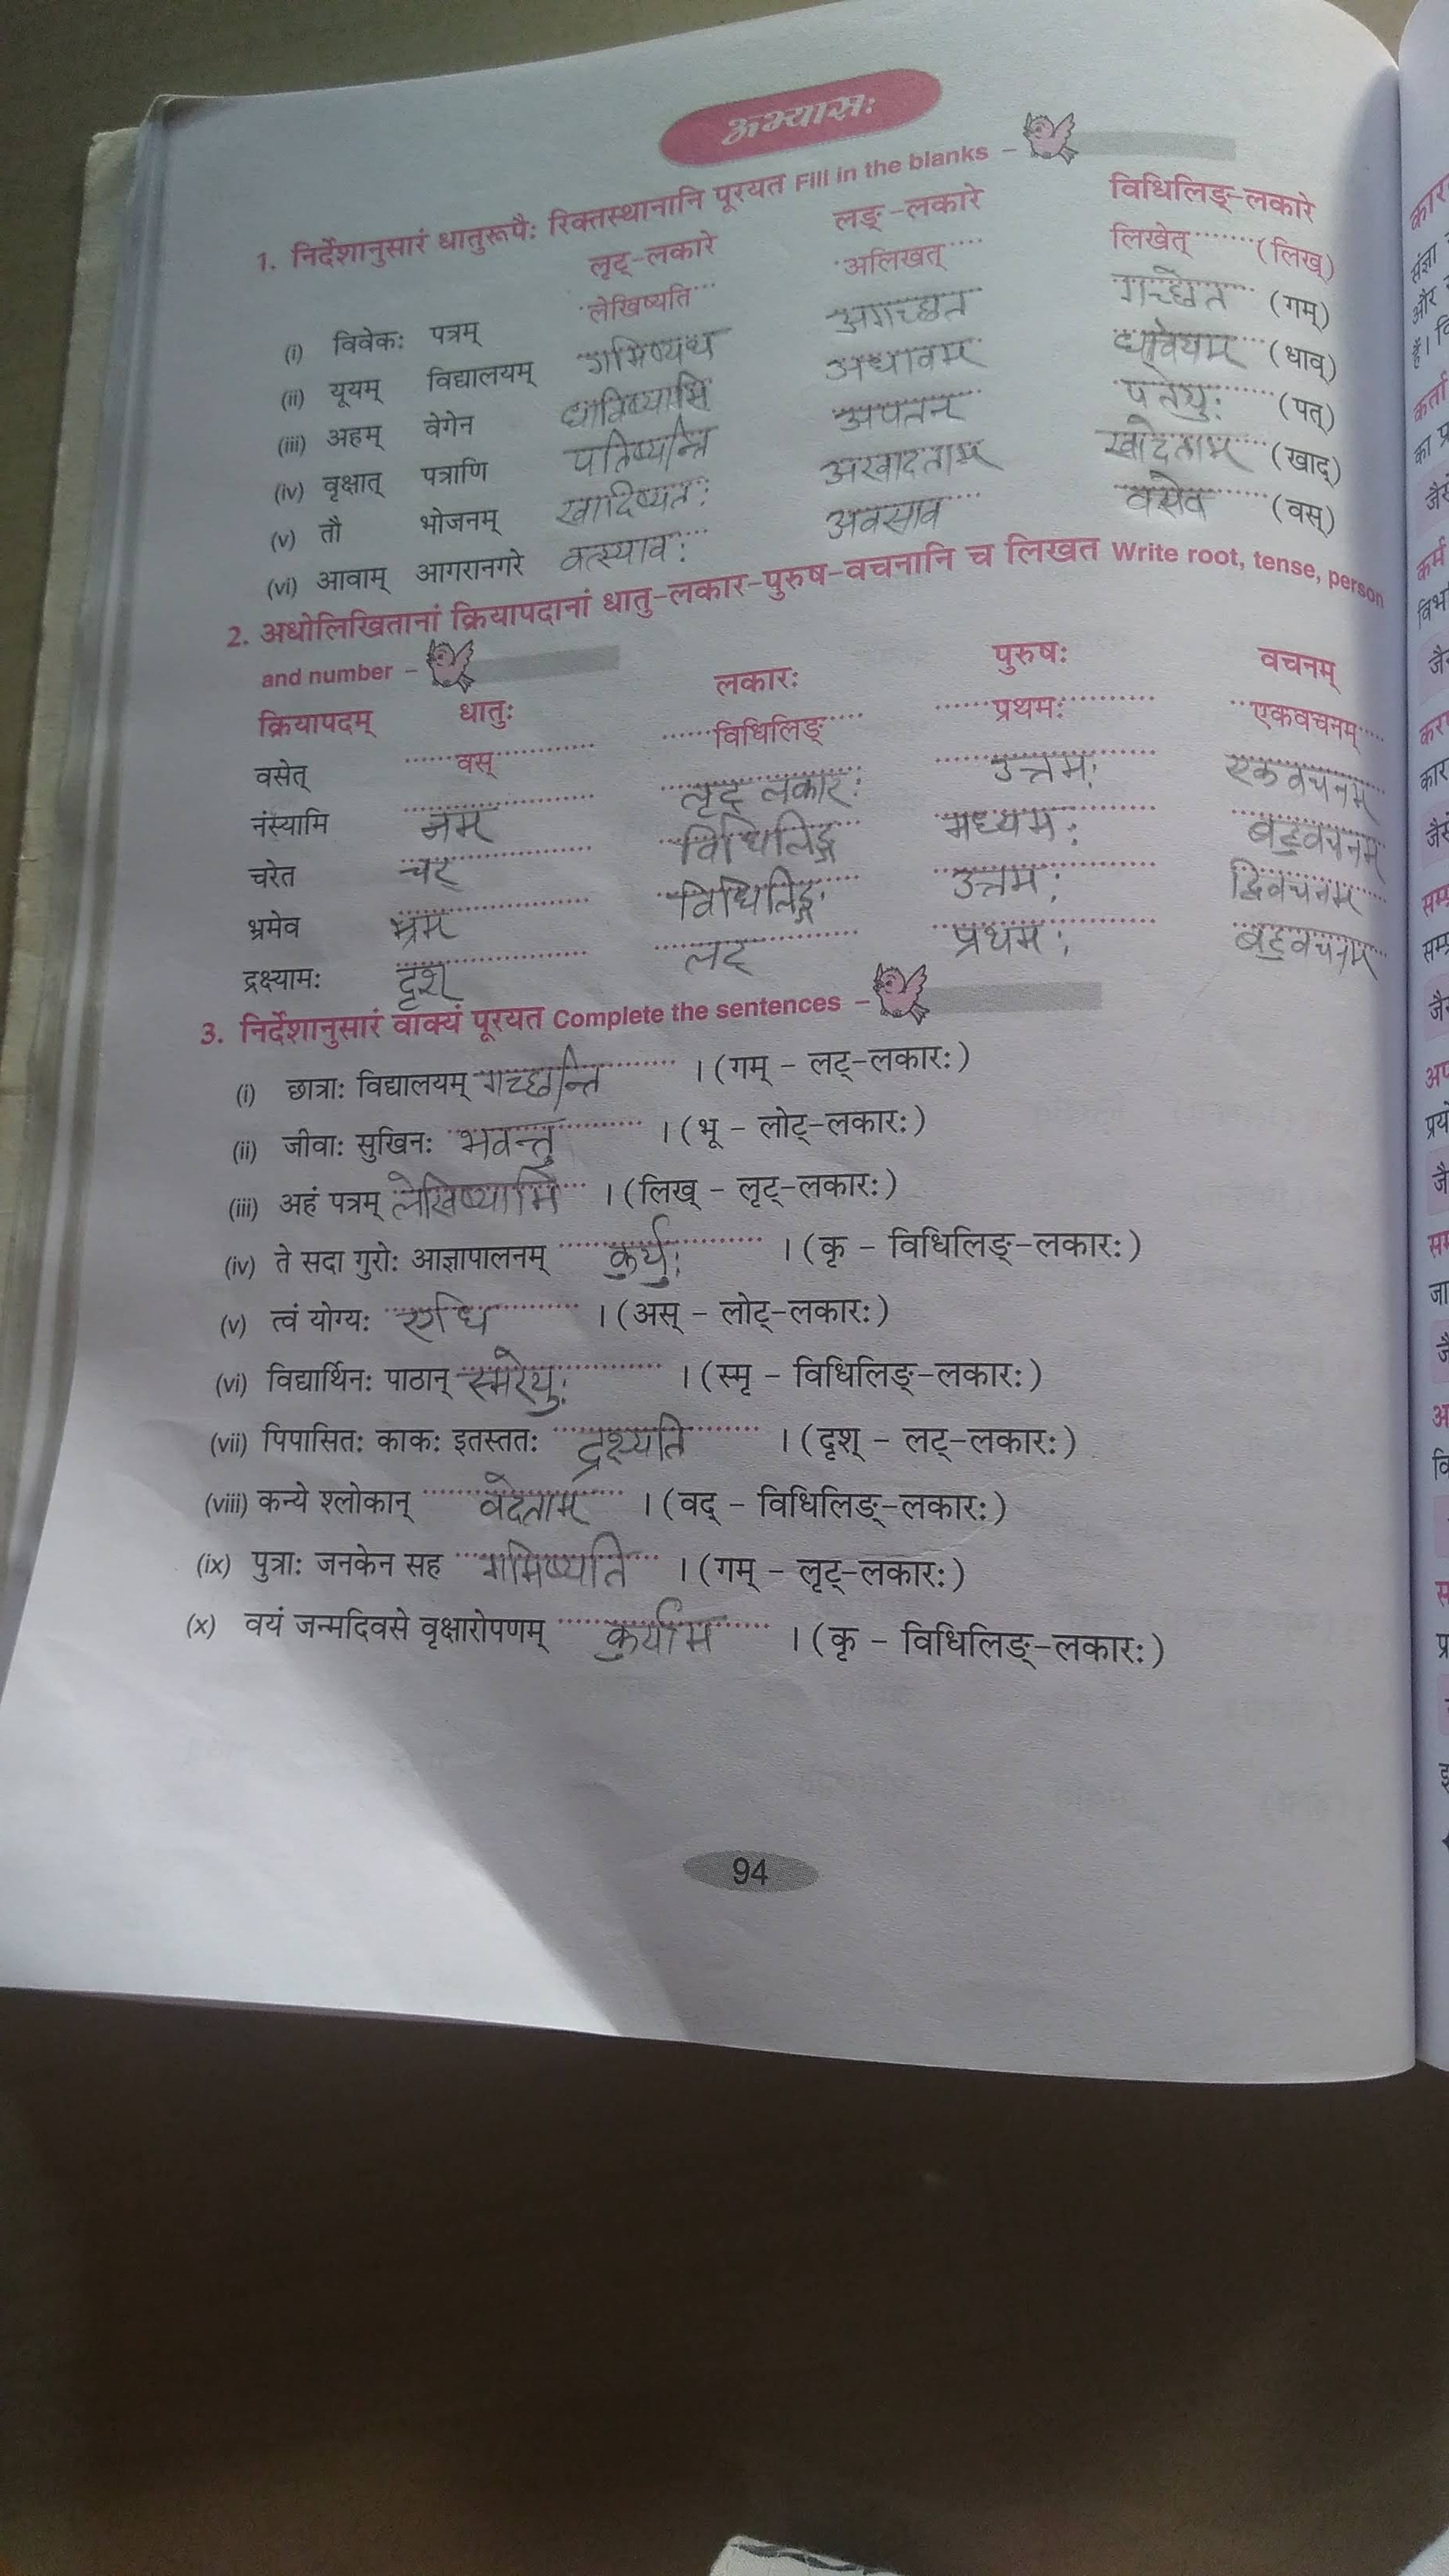 अभ्यासः
1. निर्देशानुसारं धातुरूपैः रिक्तस्थानानि पूरयत Fill in the blanks –
लृट्-लकारे लङ्-लकारे विधिलिङ्-लकारे
(i) विवेकः पत्रम् लेखिष्यति अलिखत् लिखेत् (लिख्)
(ii) यूयम् विद्यालयम् गमिष्यथ अगच्छत गच्छेत (गम्)
(iii) अहम् वेगेन धाविष्यामि अधावम् धावेयम् (धाव्)
(iv) वृक्षात् पत्राणि पतिष्यन्ति अपतन् पतेयुः (पत्)
(v) तौ भोजनम् खादिष्यतः अखादताम् खादेताम् (खाद्)
(vi) आवाम् आगरानगरे वत्स्यावः अवसाव वसेव (वस्)
2. अधोलिखितानां क्रियापदानां धातु-लकार-पुरुष-वचनानि च लिखत Write root, tense, person
and number –
क्रियापदम् धातुः लकारः पुरुषः वचनम्
वसेत् वस् विधिलिङ् प्रथमः एकवचनम्
नंस्यामि नम् लृट् लकारः उत्तमः एकवचनम्
चरेत चर् विधिलिङ्ग मध्यमः बहुवचनम्
भ्रमेव भ्रम विधिलिङ्ग उत्तमः द्विवचनम्
द्रक्ष्यामः दृश् लट् प्रथमः बहुवचनम्
3. निर्देशानुसारं वाक्यं पूरयत Complete the sentences –
(i) छात्राः विद्यालयम् गच्छन्ति । (गम् – लट्-लकारः)
(ii) जीवाः सुखिनः भवन्तु । (भू – लोट्-लकारः)
(iii) अहं पत्रम् लेखिष्यामि । (लिख् – लृट्-लकारः)
(iv) ते सदा गुरोः आज्ञापालनम् कुर्युः । (कृ – विधिलिङ्-लकारः)
(v) त्वं योग्यः एधि । (अस् – लोट्-लकारः)
(vi) विद्यार्थिनः पाठान् स्मरेयुः । (स्मृ – विधिलिङ्-लकारः)
(vii) पिपासितः काकः इतस्ततः । (दृश् – लट्-लकारः)
(viii) कन्ये श्लोकान् वदेताम् । (वद् – विधिलिङ्-लकारः)
(ix) पुत्राः जनकेन सह गमिष्यति । (गम् – लृट्-लकारः)
(x) वयं जन्मदिवसे वृक्षारोपणम् कुर्याम । (कृ – विधिलिङ्-लकारः)
94